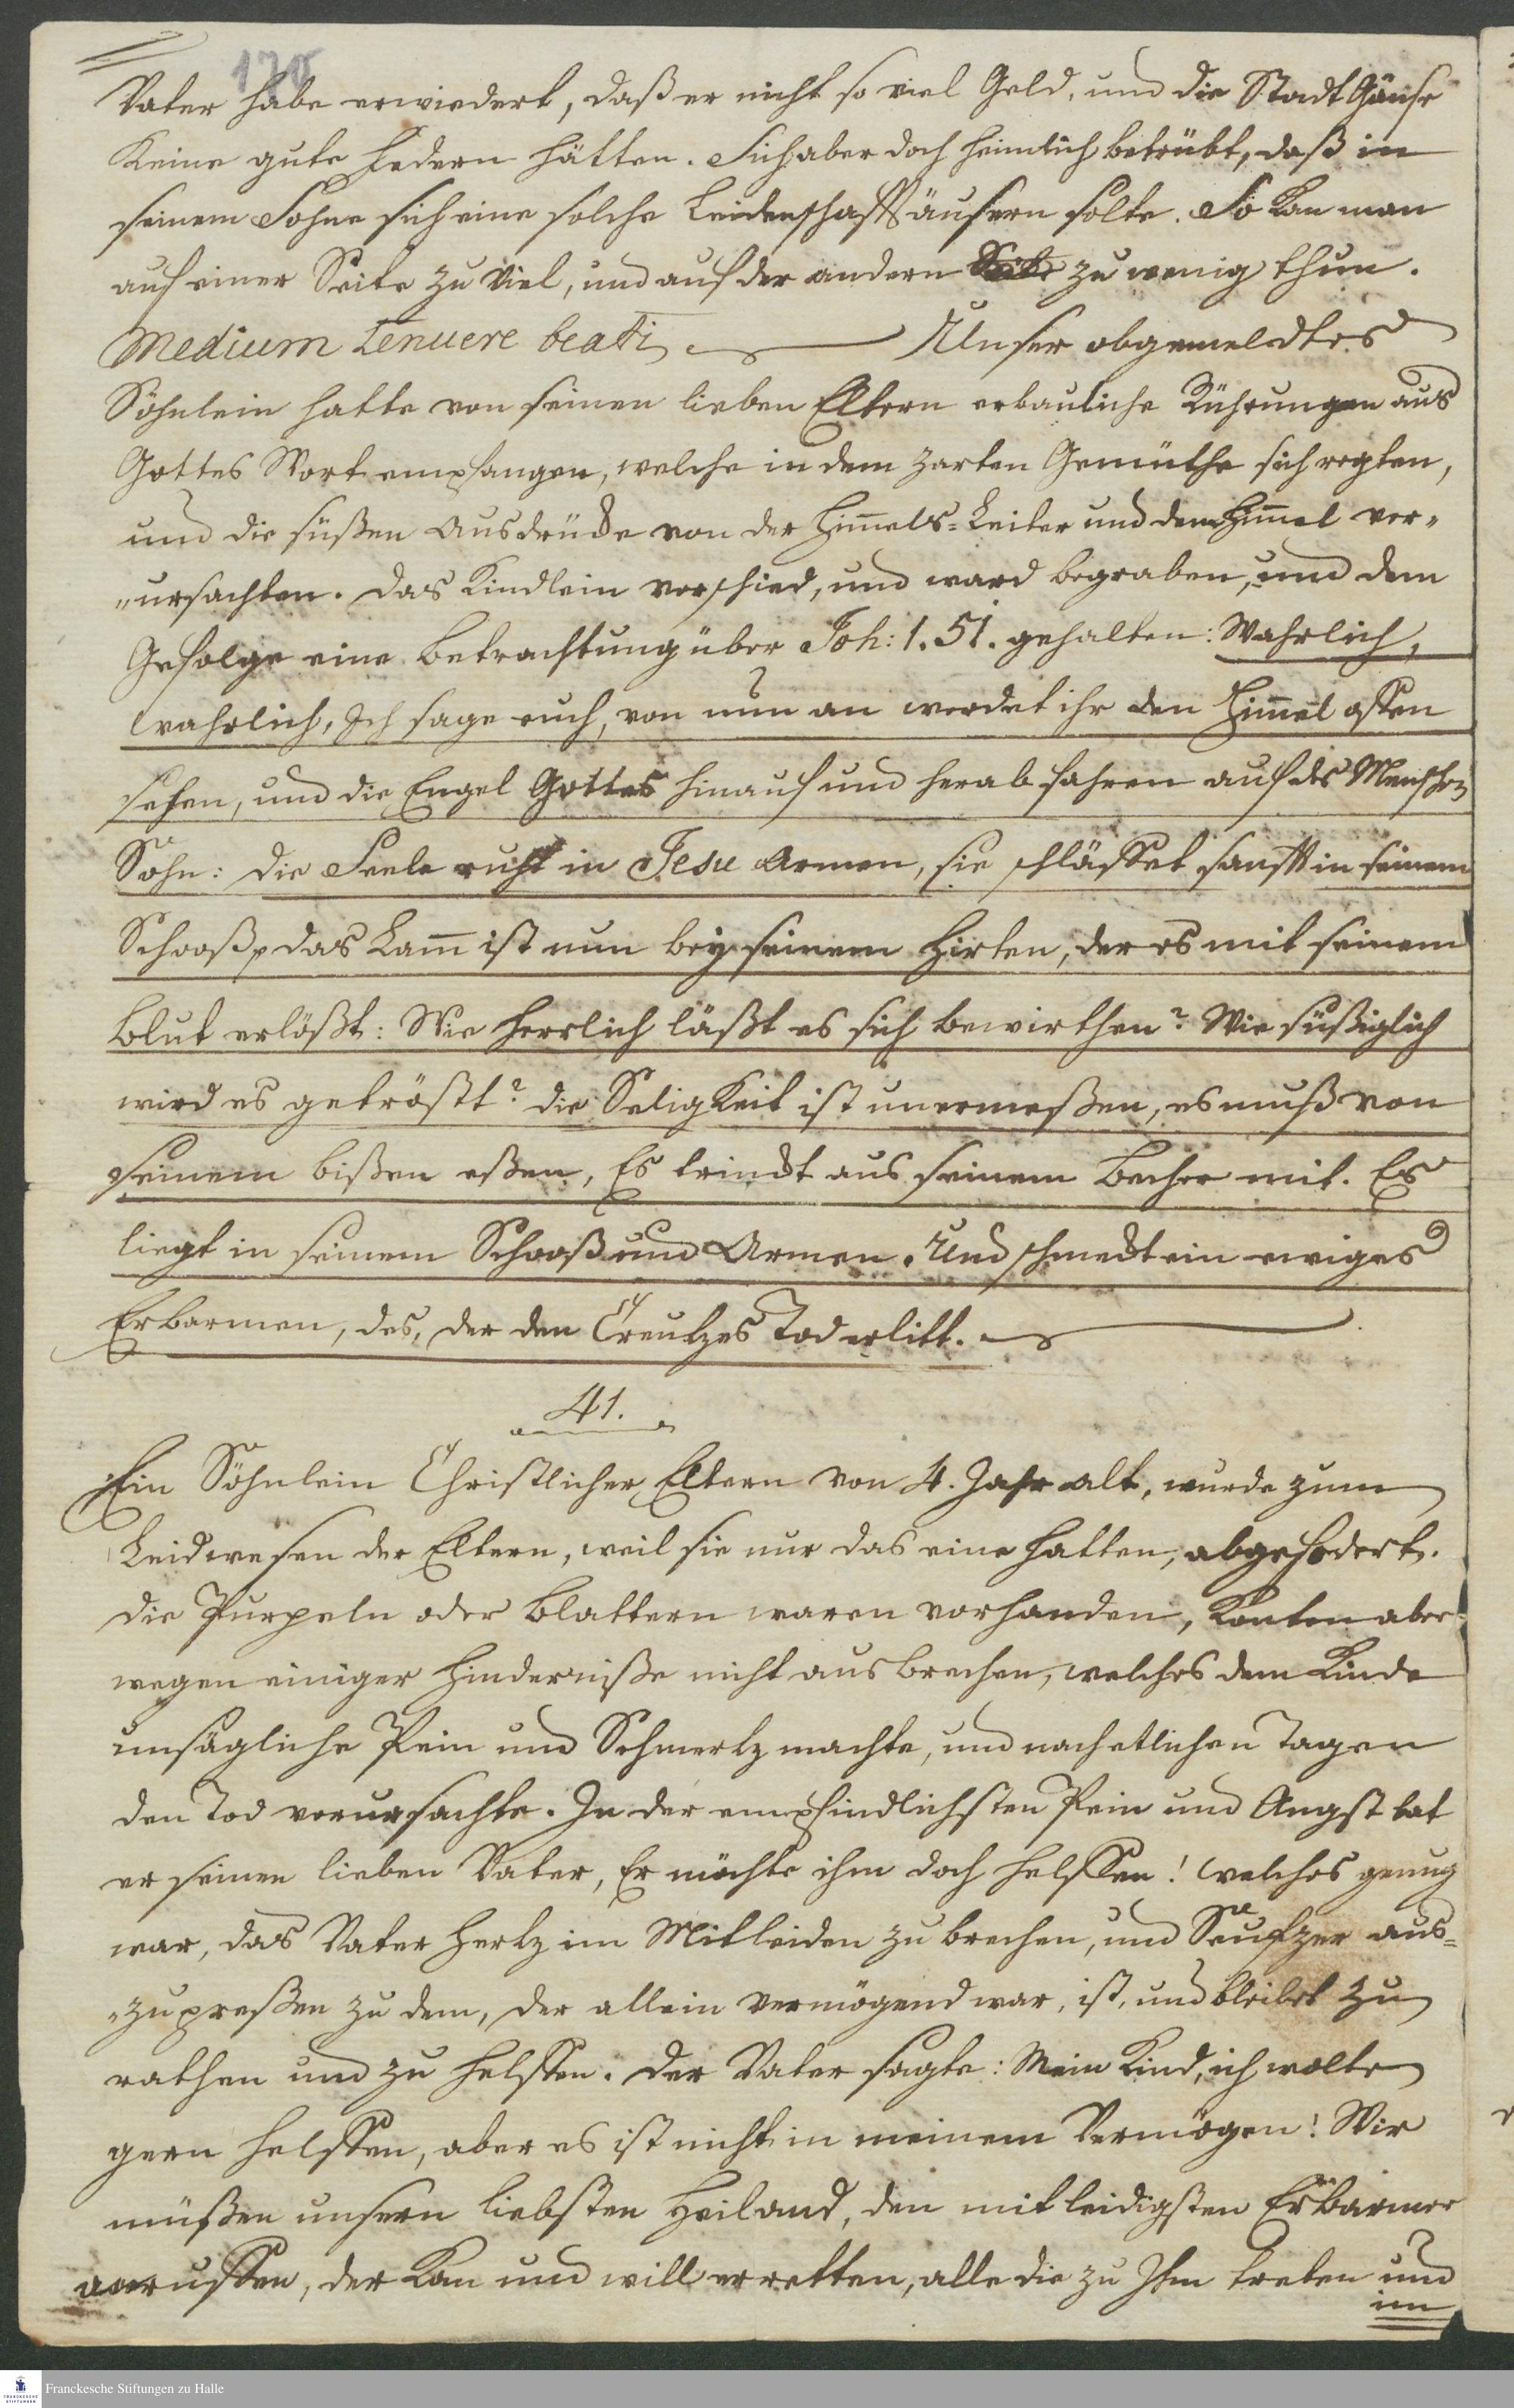 170
Vater habe erwiedert, daß er nicht so viel Geld, und die Stadt Gänse
Keine gute Federn hätten. Sich aber doch heimlich betrübt, daß in
seinem Sohne sich eine solche Leidenschafft äusern solte. So kan man
auf einer Seite zu viel, und auf der andern Seite zu wenig thun.
Medium tenuere beati Unser obgemeldtes
Söhnlein hatte von seinen lieben Eltern erbauliche Rührungen aus
Gottes Wort empfangen, welche in dem zarten Gemüthe sich regten,
und die süßen Ausdrücke von der Him̅els-Leiter und dem Him̅el ver„
„ursachten. Das Kindlein verschied, und ward begraben, und dem
Gefolge eine Betrachtung über Joh: 1. 51. gehalten: Wahrlich,
wahrlich, Ich sage euch, von nun an werdet ihr den Him̅el offen
sehen, und die Engel Gottes hinauf und herab fahren auf des Menschen
Sohn: Die Seele ruht in Jesu Armen, sie schläffet sanfft in seinem
Schooß, das Lam̅ ist nun bey seinem Hirten, der es mit seinem
Blut erlößt: Wie herrlich läßt es sich bewirthen? Wie süßiglich
wird es getröstt? Die Seligkeit ist unermeßen, es muß von
seinem bißen eßen, Es trinckt aus seinem Becher mit. Es
liegt in seinem Schooß und Armen. Und schmeckt ein ewiges
Erbarmen, des, der den Creutzes Tod erlitt.
41.
Ein Söhnlein Christlicher Eltern von 4. Jahr alt, wurde zum
Leidwesen der Eltern, weil sie nur das eine hatten, abgefodert.
Die Purpeln oder Blattern waren vorhanden, konten aber
wegen einiger Hinderniße nicht ausbrechen, welches dem Kinde
unsägliche Pein und Schmertz machte, und nach etlichen Tagen
den Tod verursachte. In der empfindlichsten Pein und Angst bat
er seinen lieben Vater, Er möchte ihm doch helffen! welches genug
war, das Vater Hertz im Mitleiden zu brechen, und Seufzer aus=
„zupreßen zu dem, der allein vermögend war, ist, und bleibet zu
rathen und zu helffen. Der Vater sagte: Mein Kind, ich wolte
gern helffen, aber es ist nicht in meinem Vermögen! Wir
müßen unsern liebsten Heiland, den mitleidigsten Erbarmer
anruffen, der kan und will erretten, alle die zu Ihm treten und
im
Franckesche Stiftungen zu Halle